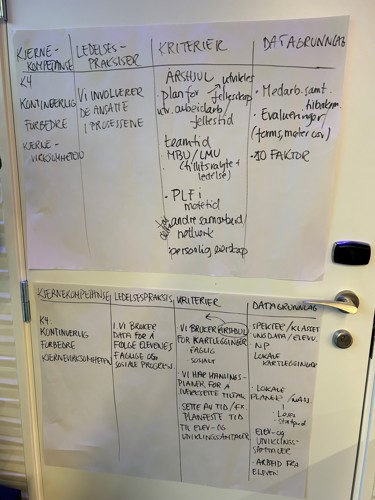 KJERNE-
KOMPETANSE
K4
KONTINUERLIG
FORBEDRE
KJERNE-
VIRKSOMHETEN
LEDELSES-
PRAKSISER
VI INVOLVERER
DE ANSATTE
I PROSESSENE
KRITERIER
ÅRSHJUL utvikles
plan for i fellesskap
utv. arbeid arb
fellestid
teamtid
MBU/LMU
(tillitsvalgte +
ledelse)
• PLF i
møtetid
andre samarbeid
nettverk
personlig eierskap
DATAGRUNNLAG
• Medarb.samt.
• Evalueringer
(forms, meter osv)
• 10 FAKTOR
KJERNEKOMPETANSE
K4
KONTINUERLIG
FORBEDRE
KJERNEVIRKSOMHETEN
LEDELSESPRAKSIS
1. VI BRUKER
DATA FOR Å
FØLGE ELEVENES
FAGLIGE OG
SOSIALE PROGRESJON
KRITERIER
• VI BRUKER ÅRSHJUL
FOR KARTLEGGINGER
FAGLIG
SOSIALT
• VI HAR HANDLINGS-
PLANER FOR Å
IVERKSETTE TILTAK
SETTE AV TID/EX.
PLANFESTE TID
TIL ELEV- OG
UTVIKLINGSSAMTALER
DATAGRUNNLAG
SPEKTER/KLASSET
UNGDATA/ELEVU.
NP
LOKALE
KARTLEGGINGER
• LOKALE
PLANER/NASJ.
• Lese
ELEV- OG
UTVIKLINGS-
SAMTALER
ARBEID FRA
ELEVEN